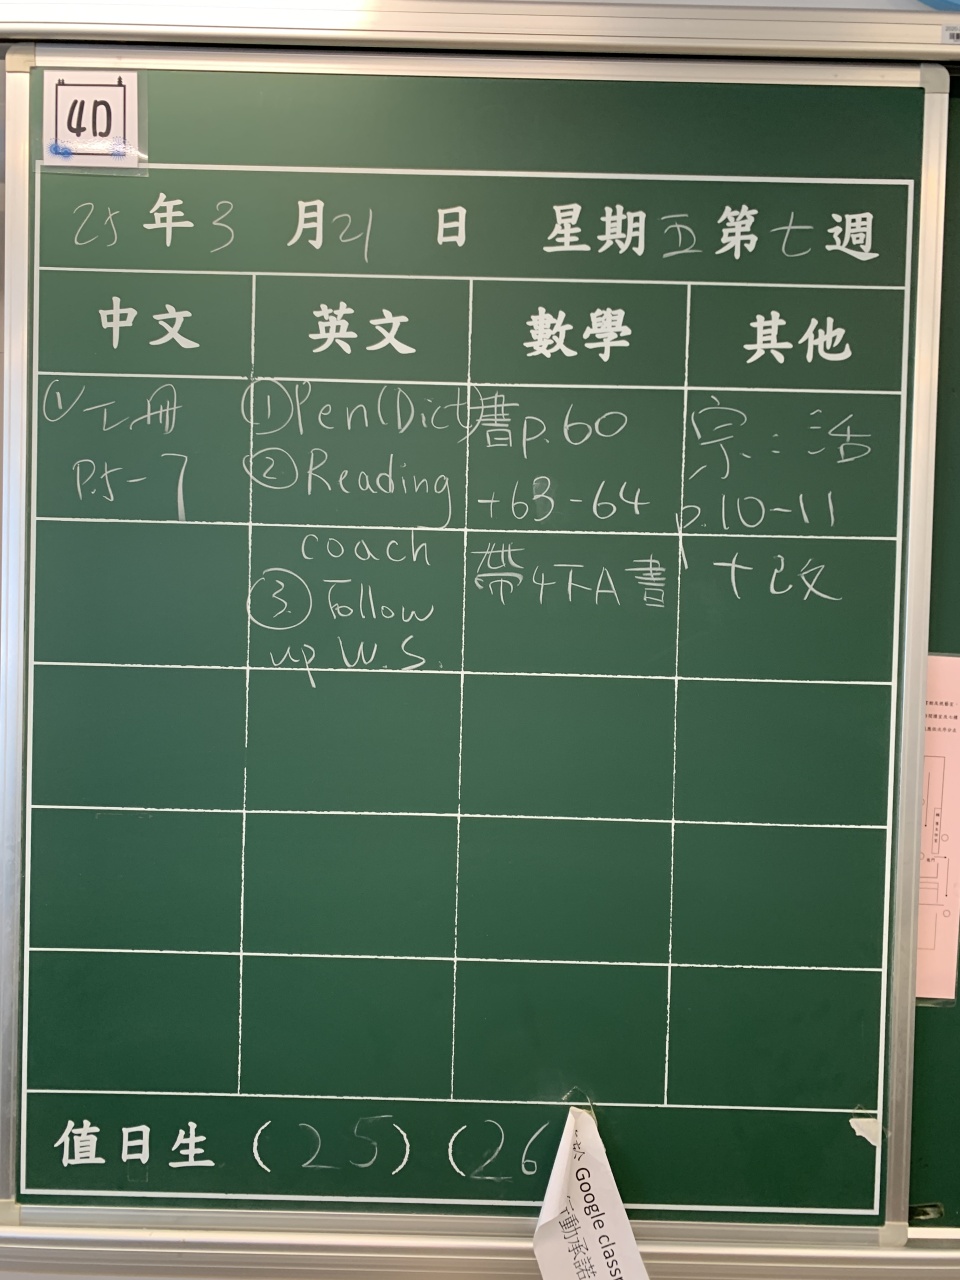 4D
25年3月21日 星期五第七週
中文 英文 數學 其他
① 工冊
P.5-7
①Pen(Dict)
②Reading
coach
③Follow
up W.S.
書p.60
+63-64
帶4下A書
宗:活
p.10-11
+改
值日生 (25) (26
Google classr
行動承諾